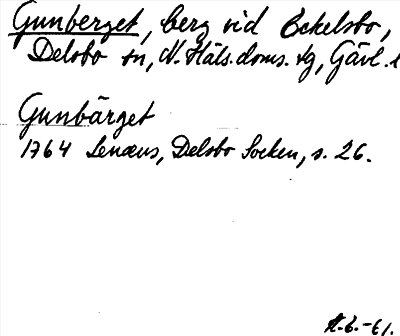 Gunberget, berg vid Eckelsbo,
Delsbo sn, N. Häls. doms. tg, Gävl. l
Gunbärget
1764 Lenæus, Delsbo Socken, s. 26.
-61.